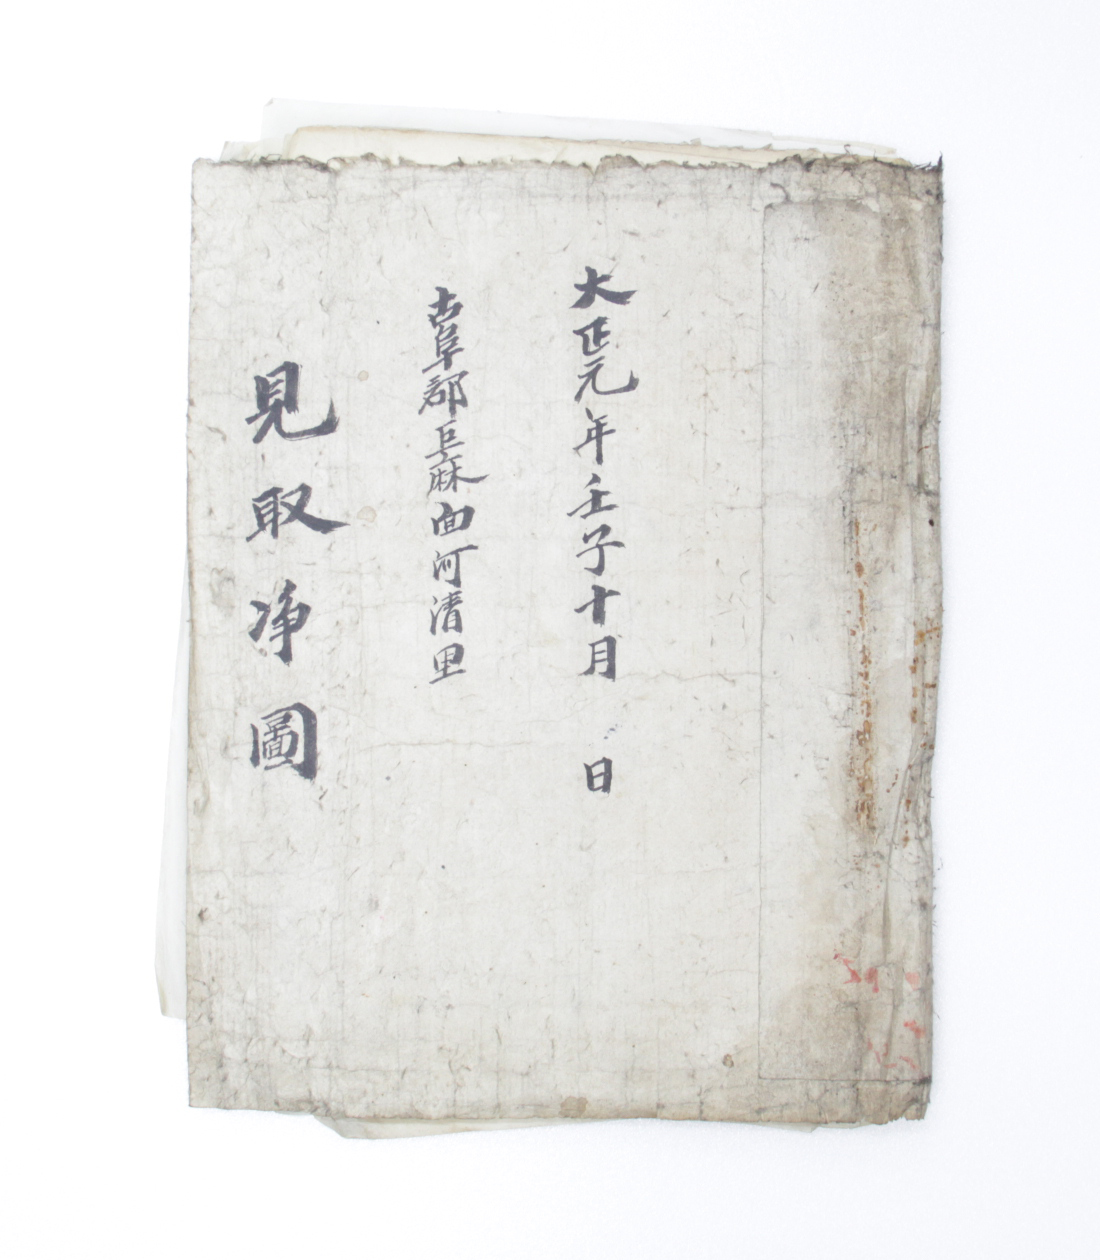 大正元年壬子十月 日
古阜郡巨麻面河清里
見取净圖